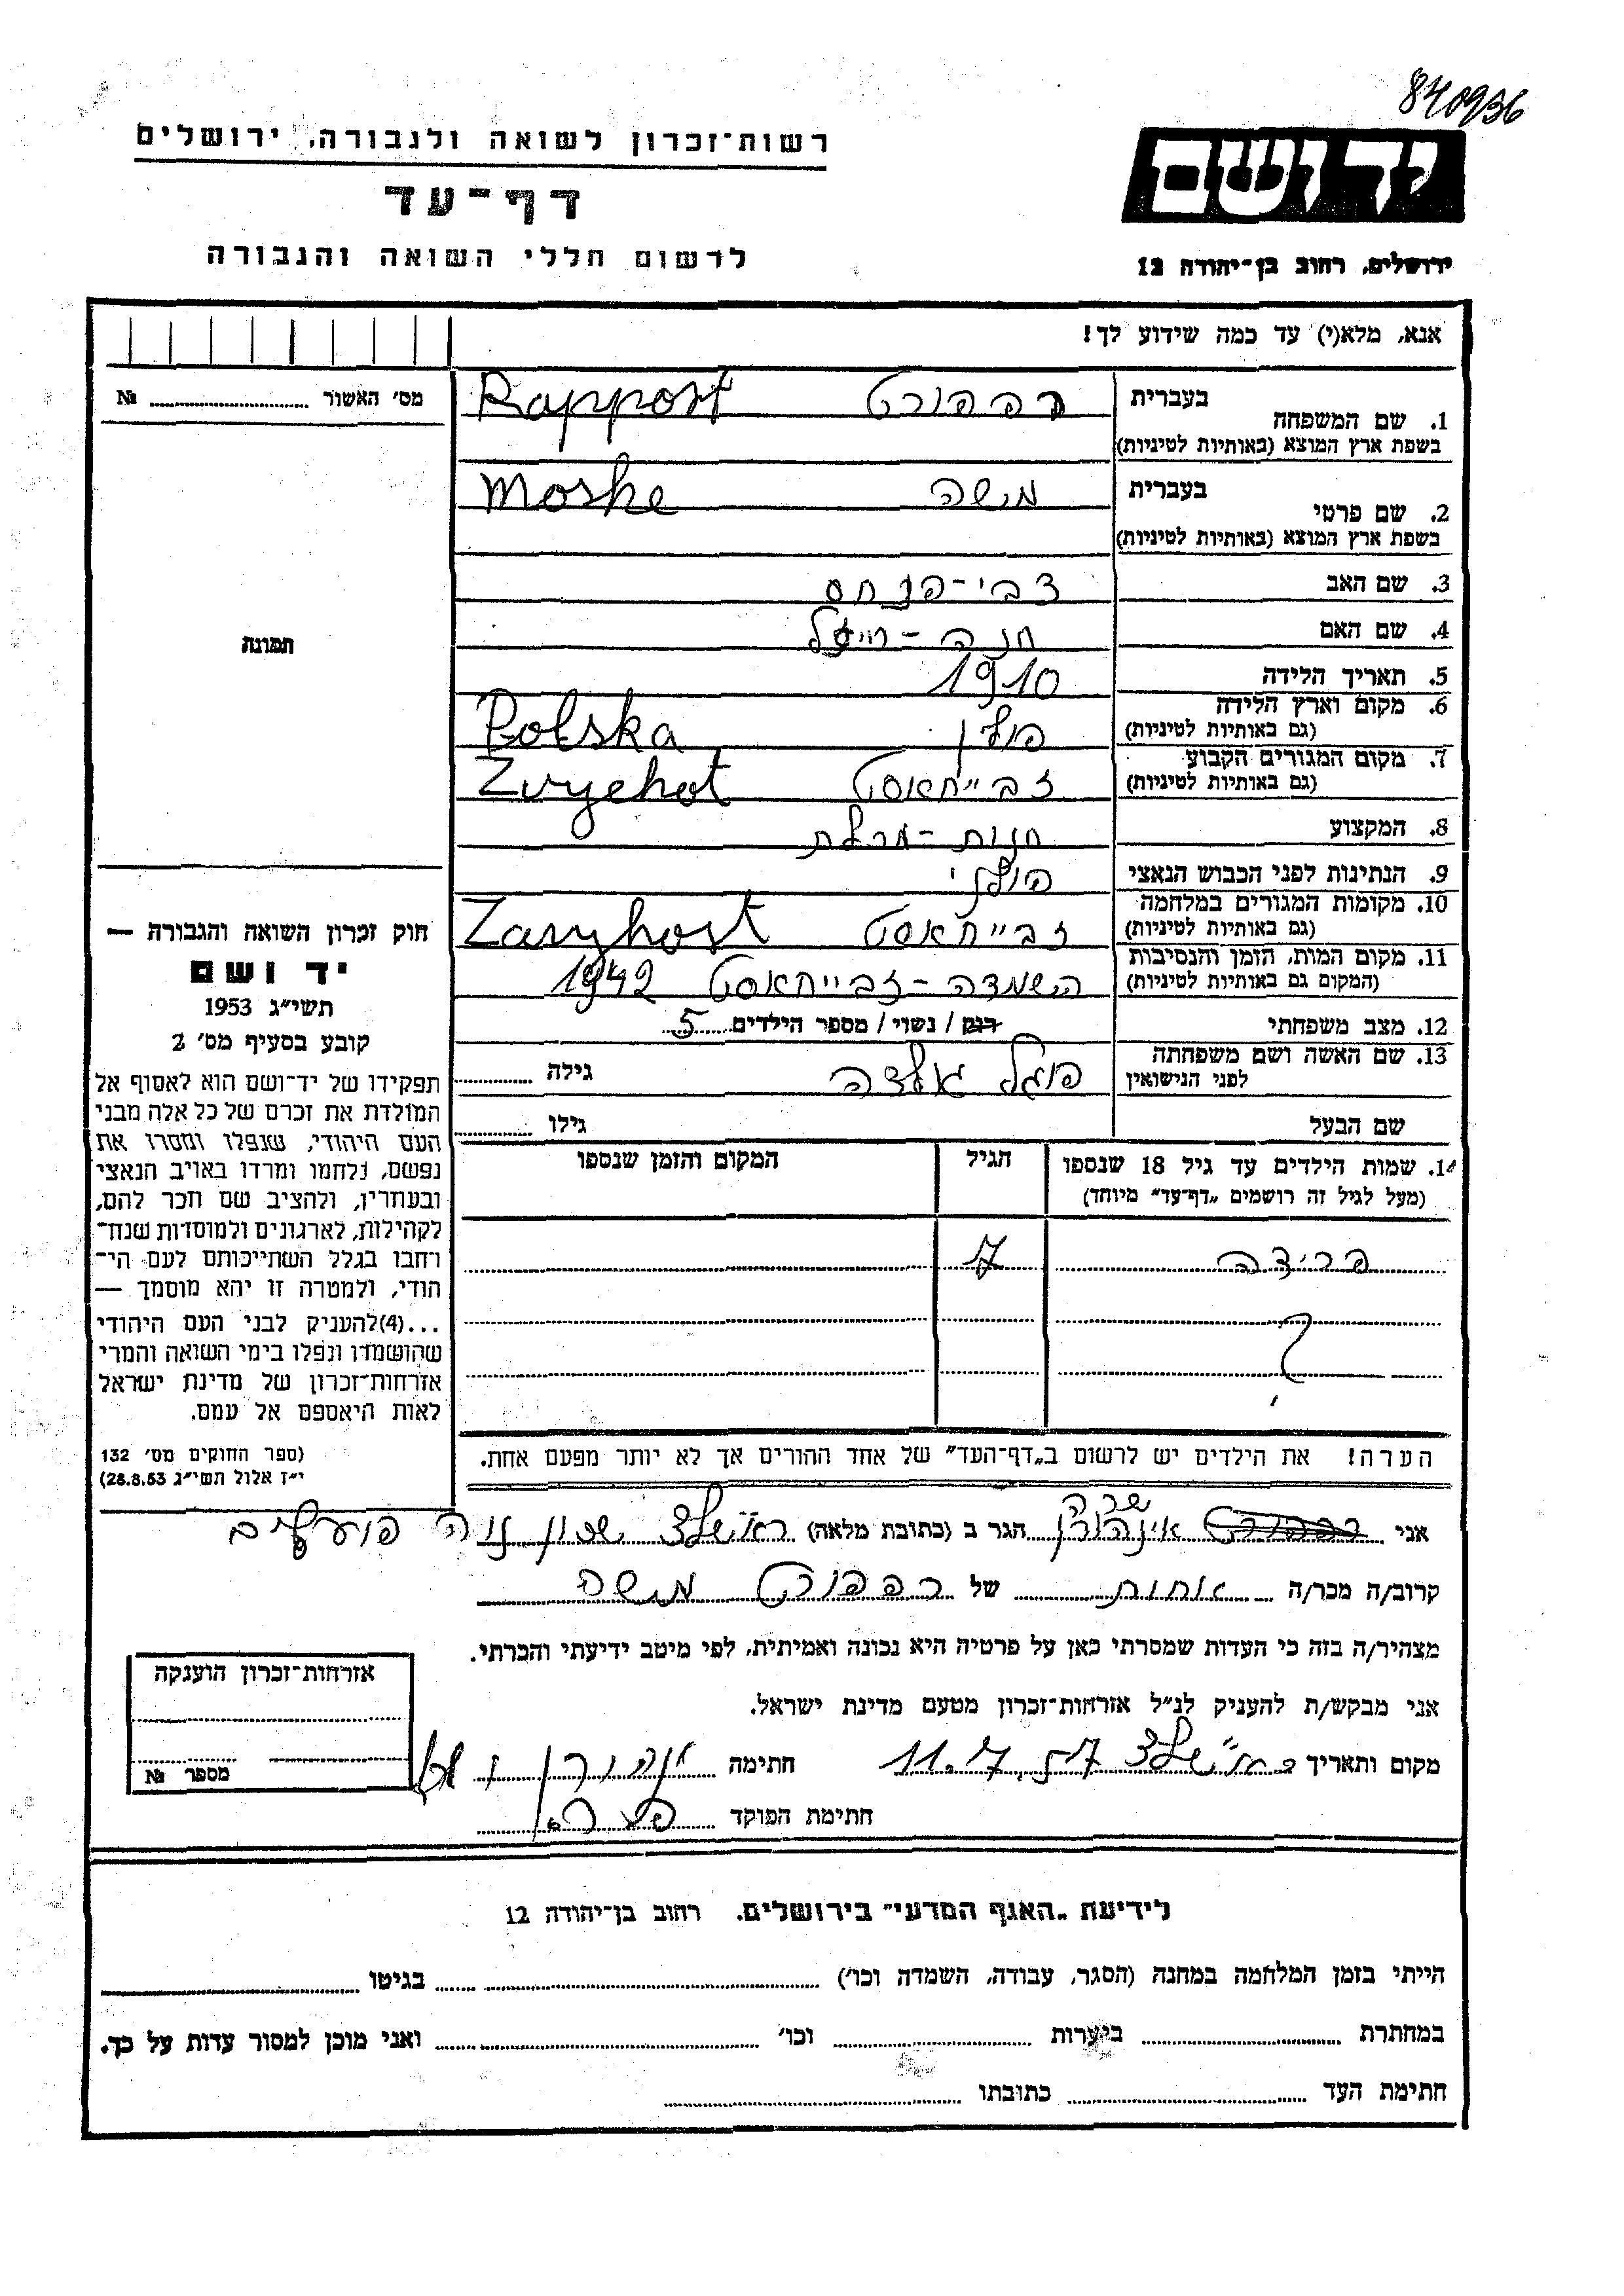 840936
רשות־זכרון לשואה ולגבורה, ירושלים
דף־עד
לרשום חללי השואה והגבורה
יד ושם
ירושלים, רחוב בן־יהודה 12
אנא, מלא(י) עד כמה שידוע לך!
מס׳ האשור № 
1. שם המשפחה
בעברית רפפורט Rapport
בשפת ארץ המוצא (באותיות לטיניות)
2. שם פרטי
בעברית משה Moshe
בשפת ארץ המוצא (באותיות לטיניות)
3. שם האב צבי־פנחס
4. שם האם חנה־
5. תאריך הלידה 1910
6. מקום וארץ הלידה
(גם באותיות לטיניות) פולין Polska
7. מקום המגורים הקבוע
(גם באותיות לטיניות) זבייחאסט Zvyehot
8. המקצוע חנות־
9. הנתינות לפני הכבוש הנאצי פולני
10. מקומות המגורים במלחמה
(גם באותיות לטיניות) זבייחאסט Zavyhost
11. מקום המות, הזמן והנסיבות
(המקום גם באותיות לטיניות) השמדה־זבייחאסט 1942
12. מצב משפחתי רוק / נשוי / מספר הילדים 5
13. שם האשה ושם משפחתה
לפני הנישואין פוגל גולדה גילה
שם הבעל גילו
14. שמות הילדים עד גיל 18 שנספו הגיל המקום והזמן שנספו
(מעל לגיל זה רושמים „דף־עד״ מיוחד)
פרידה 7
?
הערה! את הילדים יש לרשום ב„דף־העד״ של אחד ההורים אך לא יותר מפעם אחת.
תמונה
חוק זכרון השואה והגבורה —
יד ושם
תשי״ג 1953
קובע בסעיף מס׳ 2
תפקידו של יד־ושם הוא לאסוף אל
המולדת את זכרם של כל אלה מבני
העם היהודי, שנפלו ומסרו את
נפשם, נלחמו ומרדו באויב הנאצי
ובעוזריו, ולהציב שם וזכר להם,
לקהילות, לארגונים ולמוסדות שנח־
רחבו בגלל השתייכותם לעם הי־
הודי, ולמטרה זו יהא מוסמך —
...(4)להעניק לבני העם היהודי
שהושמדו ונפלו בימי השואה והמרי
אזרחות־זכרון של מדינת ישראל
לאות היאספם אל עמם.
(ספר החוקים מס׳ 132
י״ז אלול תשי״ג 28.8.53)
שרה
אני רפפורט אינהורן הגר ב (כתובת מלאה) ראשלצ שכון נוה פועלים
קרוב/ה מכר/ה אחות של רפפורט משה
מצהיר/ה בזה כי העדות שמסרתי כאן על פרטיה היא נכונה ואמיתית, לפי מיטב ידיעתי והכרתי.
אני מבקש/ת להעניק לנ״ל אזרחות־זכרון מטעם מדינת ישראל.
מקום ותאריך ראשלצ 11.7.57 חתימה
חתימת הפוקד
אזרחות־זכרון הוענקה
מספר №
לידיעת „האגף המדעי״ בירושלים, רחוב בן־יהודה 12
הייתי בזמן המלחמה במחנה (הסגר, עבודה, השמדה וכו׳) בגיטו
במחתרת ביערות וכו׳ ואני מוכן למסור עדות על כך.
חתימת העד כתובתו